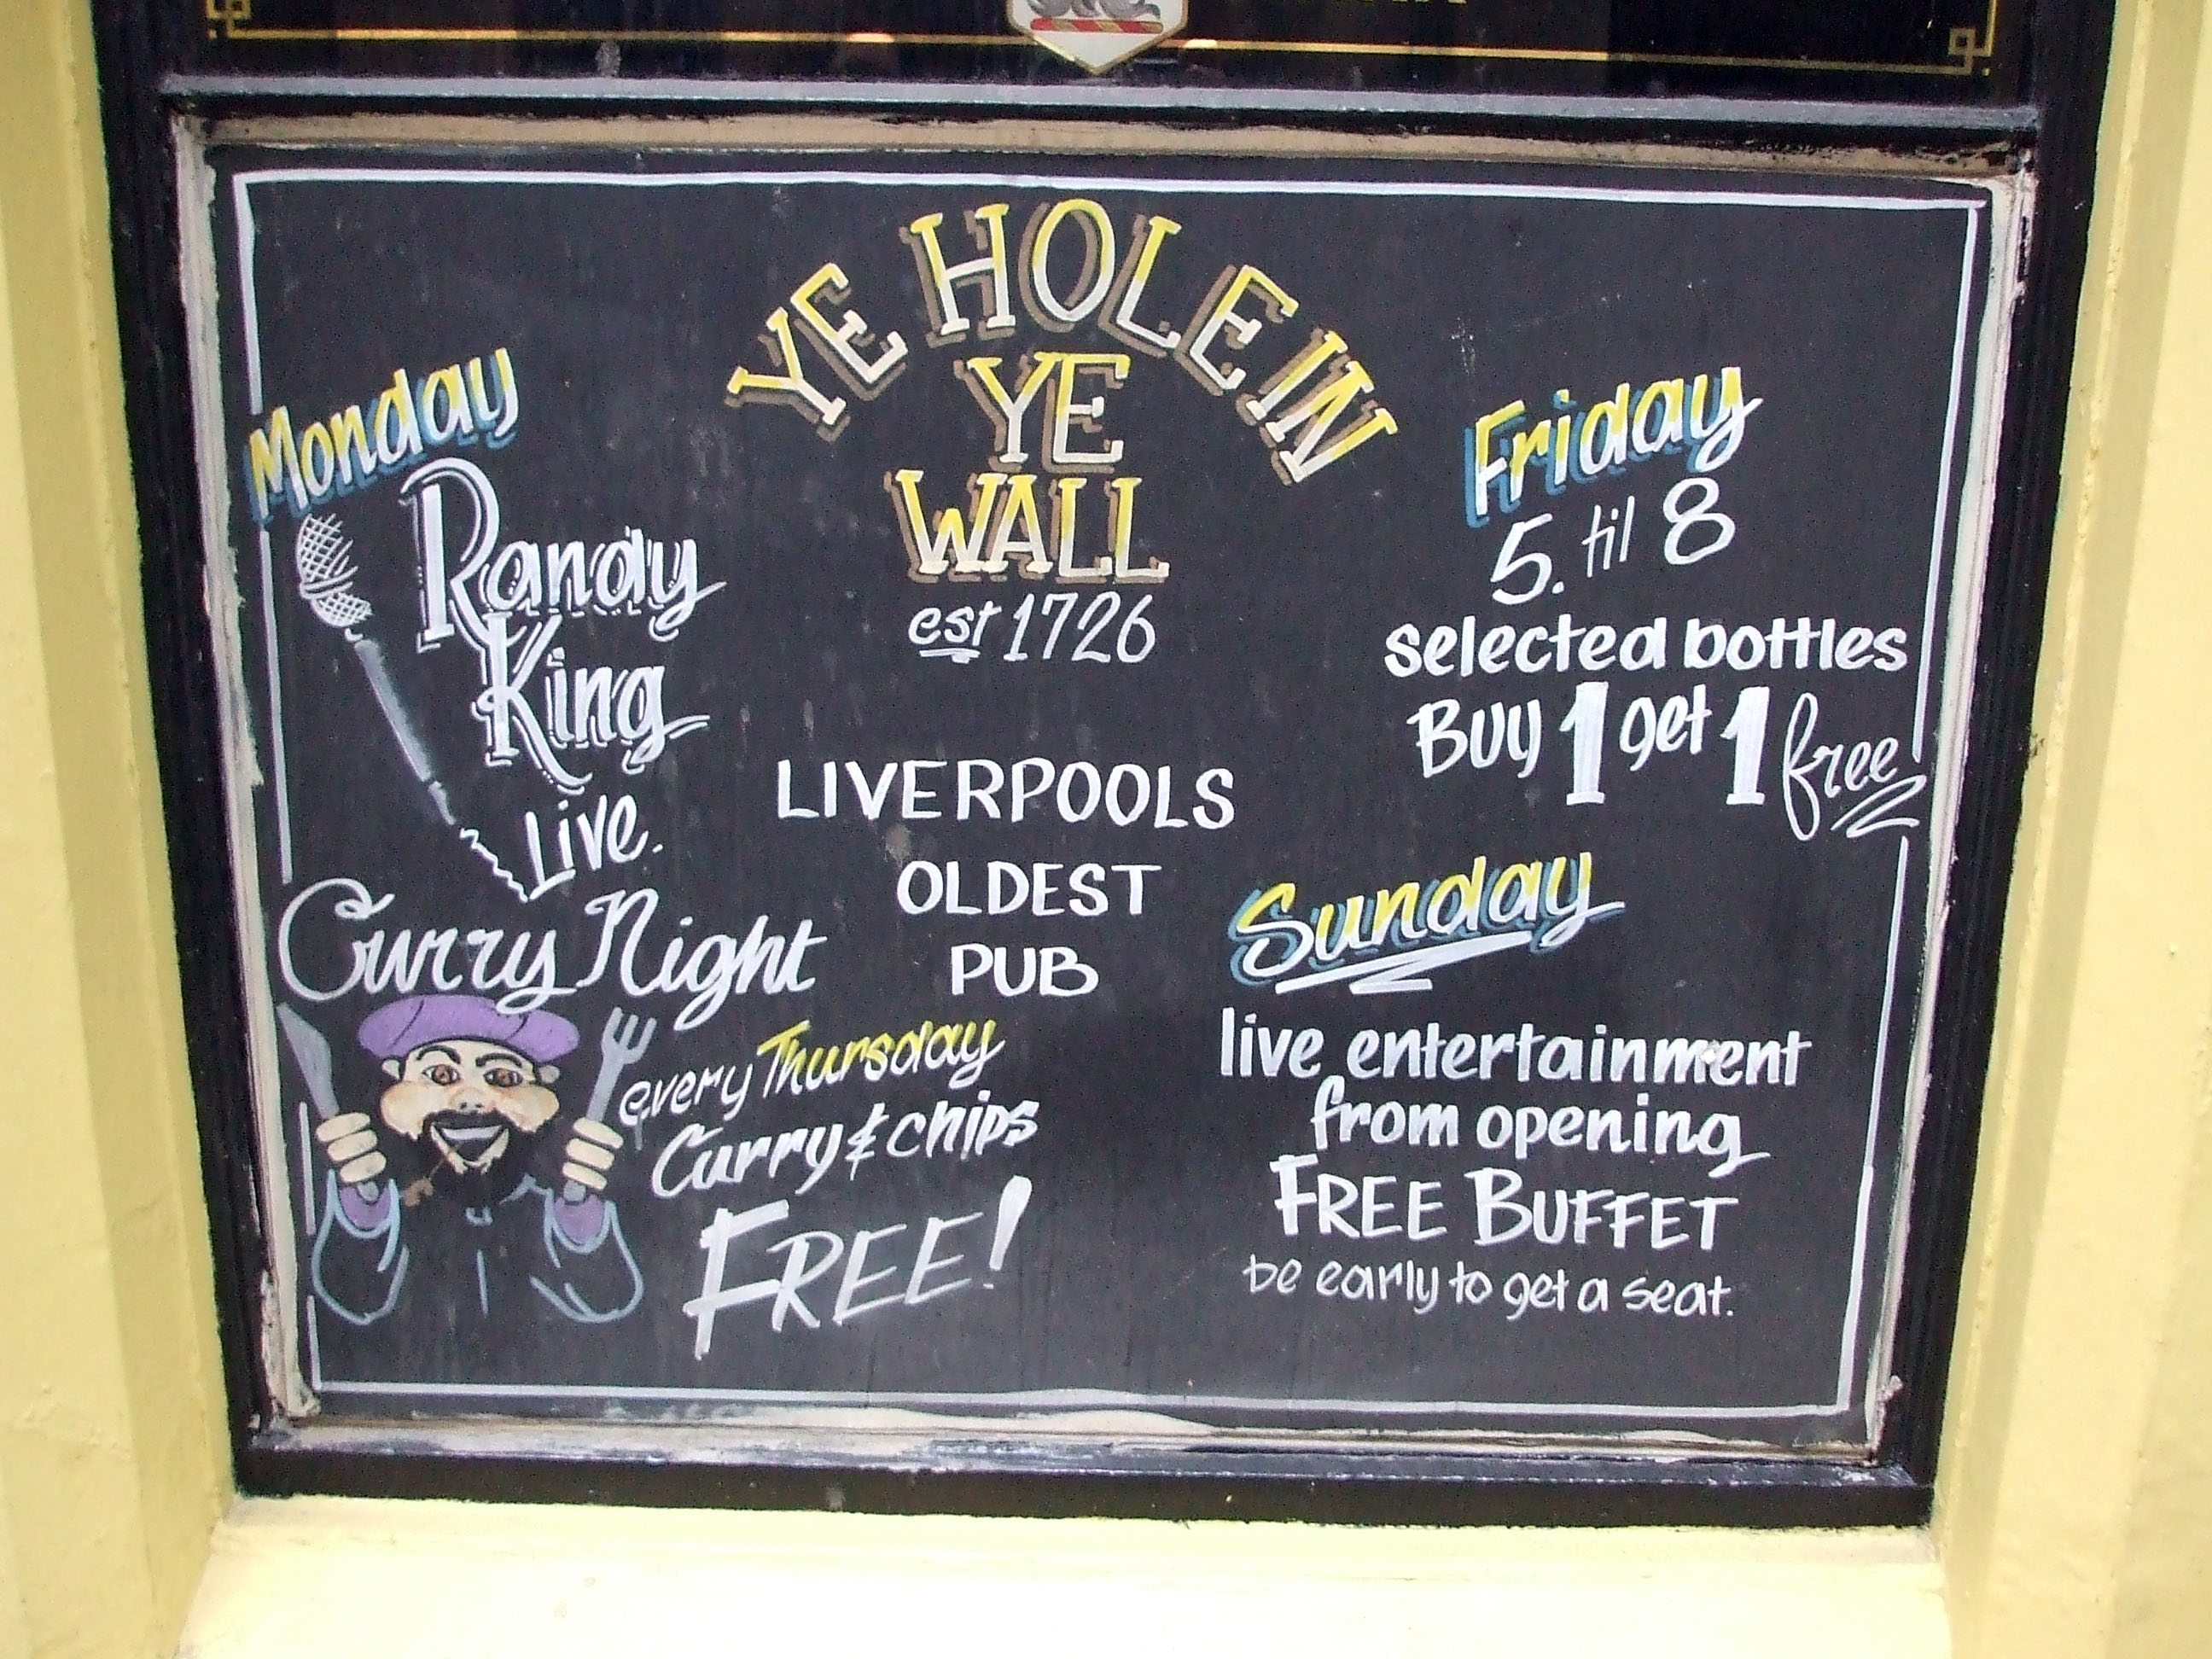 YE HOLE IN
YE
WALL
est 1726
LIVERPOOLS
OLDEST
PUB
Monday
Randy
King
Live.
Curry Night
every Thursday
Curry & chips
FREE!
Friday
5. til 8
selected bottles
Buy 1 get 1 free
Sunday
live entertainment
from opening
FREE BUFFET
be early to get a seat.